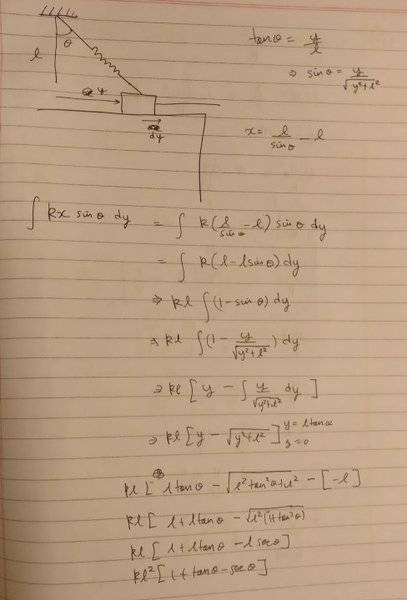 tanθ = y/l
θ
l
⇒ sinθ = y/√(y²+l²)
y
dy
x = l/sinθ - l
∫ kx sinθ dy = ∫ k(l/sinθ - l) sinθ dy
= ∫ k(l - l sinθ) dy
⇒ kl ∫ (1 - sinθ) dy
⇒ kl ∫ (1 - y/√(y²+l²)) dy
⇒ kl [ y - ∫ y/√(y²+l²) dy ]
⇒ kl [ y - √(y²+l²) ] y = l tanθ y = 0
kl [ l tanθ - √(l² tan²θ + l²) - [-l]
kl [ l + l tanθ - √(l²(1+tan²θ))
kl [ l + l tanθ - l secθ ]
kl² [ 1 + tanθ - secθ ]